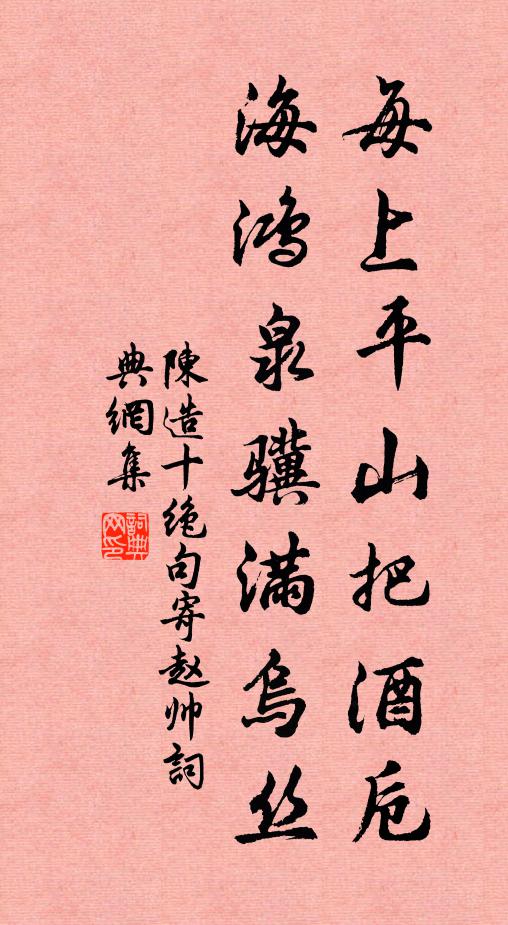 每上平山把酒卮
海鸿泉骥满乌丝
陳造十绝句寄赵帅詞
典網集
詞典网印